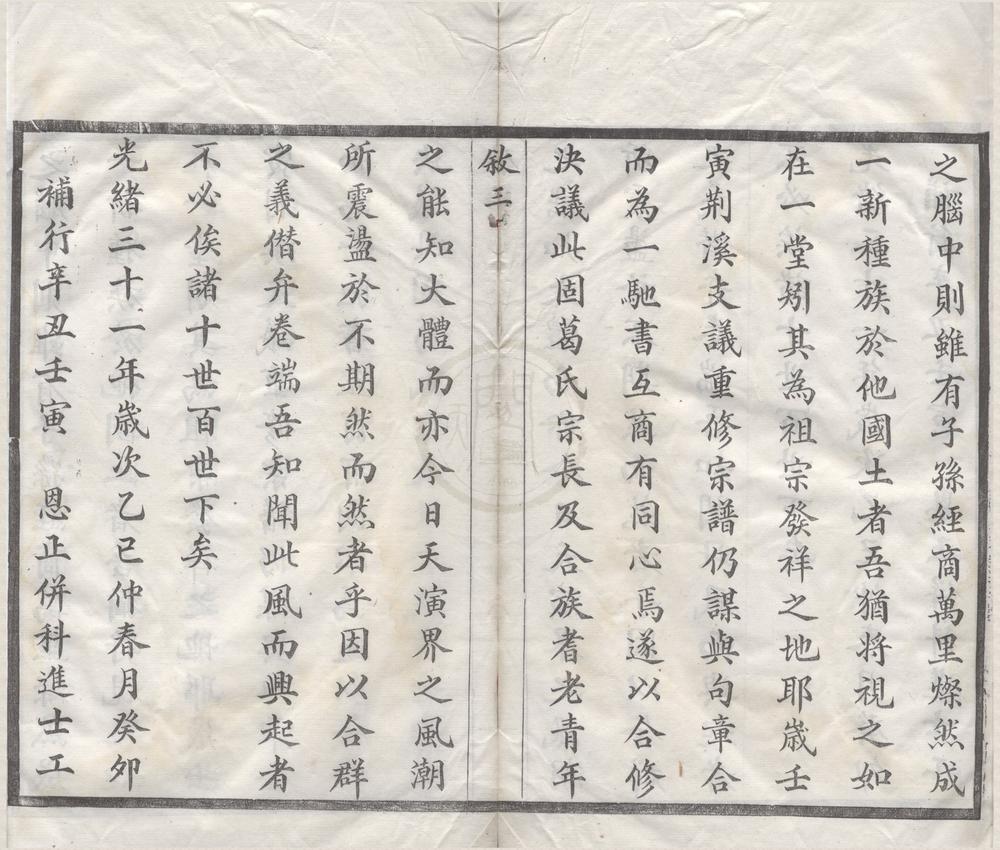 之腦中則雖有子孫經商萬里燦然成
一新種族於他國土者吾猶將視之如
在一堂矧其為祖宗發祥之地耶歲壬
寅荆溪支議重修宗譜仍謀與句章合
而為一馳書互商有同心焉遂以合修
決議此固葛氏宗長及合族耆老青年
敘三
之能知大體而亦今日天演界之風潮
所震盪於不期然而然者乎因以合群
之義僭弁卷端吾知聞此風而興起者
不必俟諸十世百世下矣
光緒三十一年歲次乙巳仲春月癸卯
補行辛丑壬寅 恩正併科進士工